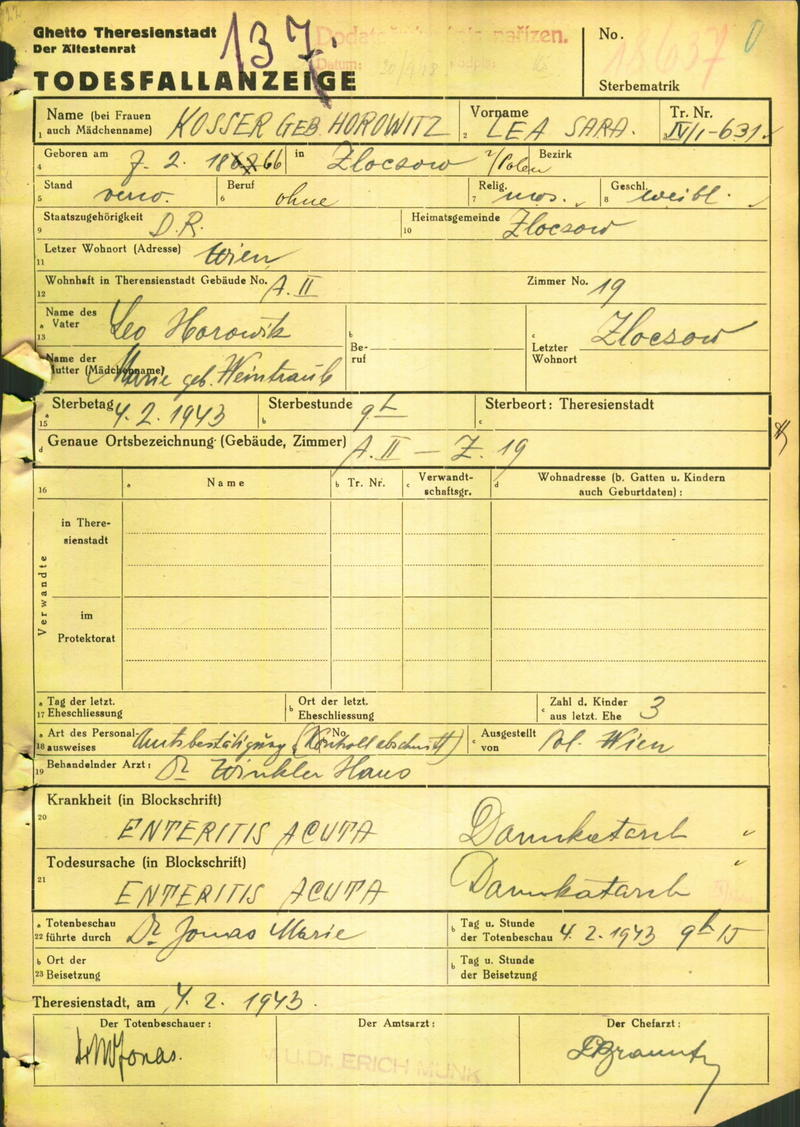 Ghetto Theresienstadt
Der Ältestenrat
TODESFALLANZEIGE
137.
nařízen.
Datum:
No. 18.637
Sterbematrik
1 Name (bei Frauen auch Mädchenname) KOSSER GEB HOROWITZ
2 Vorname LEA SARA.
Tr. Nr. IV/1-631
4 Geboren am 7. 2. 1866 in Zloczow /Polen Bezirk
5 Stand verw. 6 Beruf ohne 7 Relig. mos. 8 Geschl. weibl.
9 Staatszugehörigkeit D.R. 10 Heimatsgemeinde Zloczow
11 Letzer Wohnort (Adresse) Wien
12 Wohnhaft in Theresienstadt Gebäude No. A.II Zimmer No. 19
13 a Name des Vater Leo Horowitz b Beruf c Letzter Wohnort Zloczow
Name der Mutter (Mädchenname) Marie geb. Weintraub
15 a Sterbetag 4. 2. 1943 b Sterbestunde 9h c Sterbeort: Theresienstadt
d Genaue Ortsbezeichnung (Gebäude, Zimmer) A.II — Z. 19
16 a Name b Tr. Nr. c Verwandtschaftsgr. d Wohnadresse (b. Gatten u. Kindern auch Geburtdaten):
Verwandte
in Theresienstadt
im Protektorat
17 a Tag der letzt. Eheschliessung b Ort der letzt. Eheschliessung c Zahl d. Kinder aus letzt. Ehe 3
18 a Art des Personalausweises Amtsbestätigung (Kontrollabschnitt) b No. c Ausgestellt von Pol. Wien
19 Behandelnder Arzt: Dr Winkler Hans
20 Krankheit (in Blockschrift)
ENTERITIS ACUTA Darmkatarrh
21 Todesursache (in Blockschrift)
ENTERITIS ACUTA Darmkatarrh
22 a Totenbeschau führte durch Dr Jonas Marie b Tag u. Stunde der Totenbeschau 4. 2. 1943 9h 15
23 b Ort der Beisetzung b Tag u. Stunde der Beisetzung
Theresienstadt, am 4. 2. 1943.
Der Totenbeschauer: Der Amtsarzt: Der Chefarzt:
Jonas.
M.U.Dr. ERICH MUNK